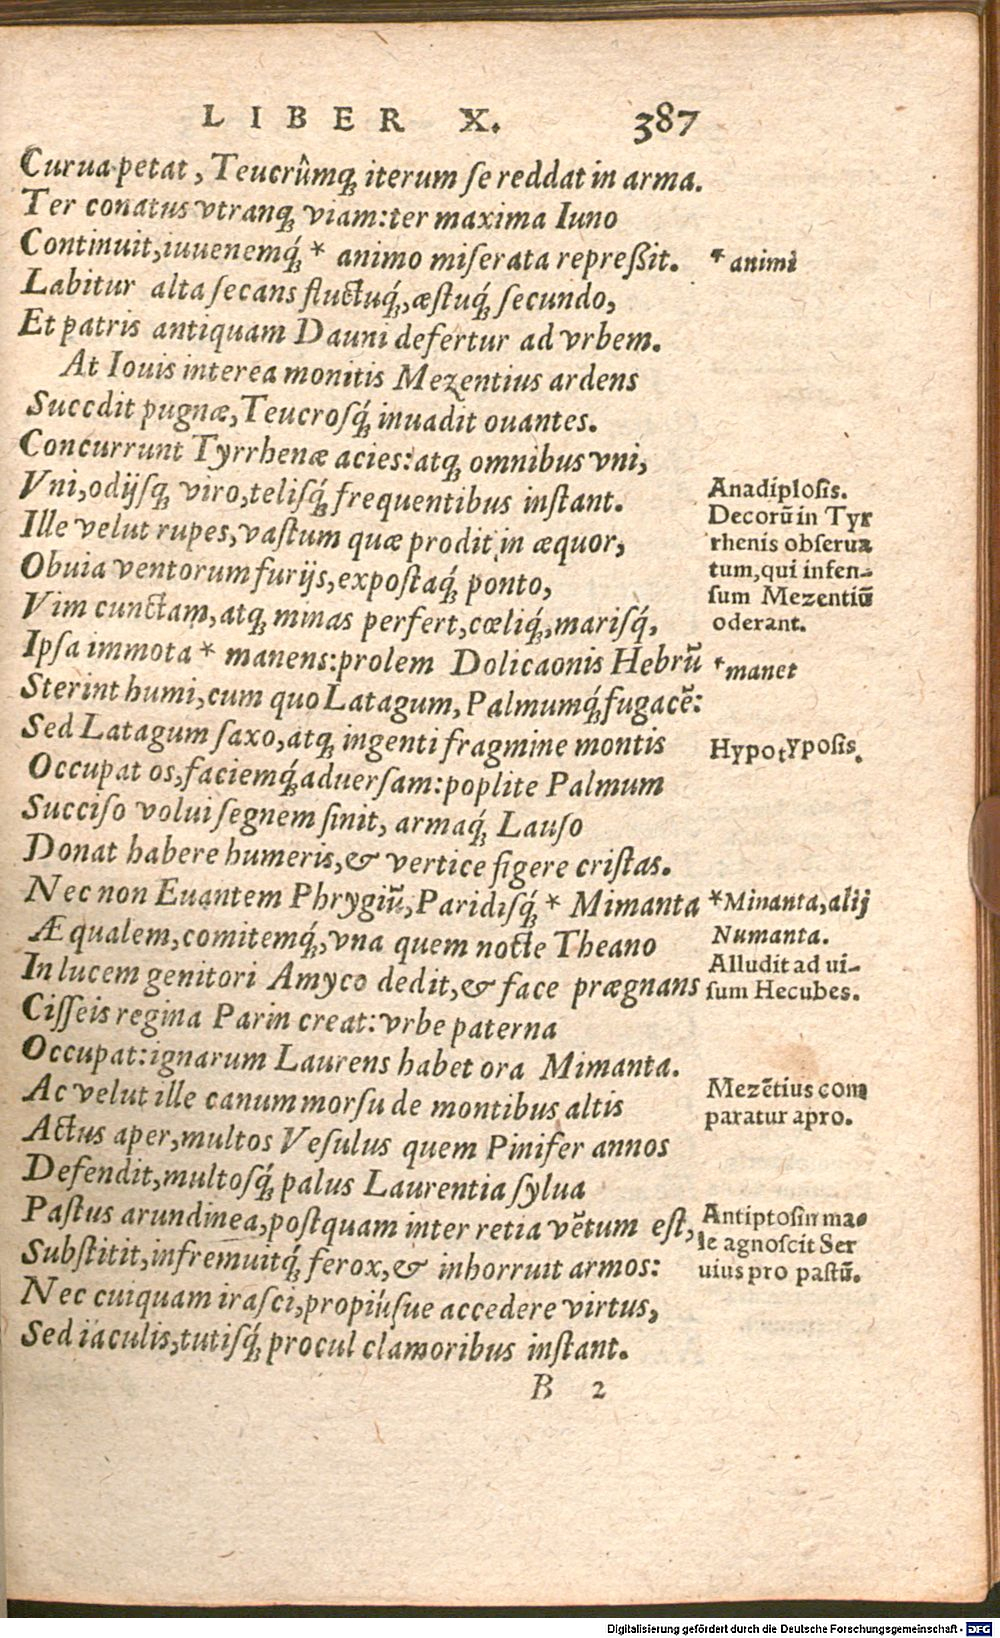 LIBER X. 387
Curua petat, Teucrûmq́; iterum se reddat in arma.
Ter conatus vtranq; viam: ter maxima Iuno
Continuit, iuuenemq́; * animo miserata repreßit.
* animi
Labitur alta secans fluctuq́;, æstuq́; secundo,
Et patris antiquam Dauni defertur ad vrbem.
At Iouis interea monitis Mezentius ardens
Succdit pugnæ, Teucrosq́; inuadit ouantes.
Concurrunt Tyrrhenæ acies: atq; omnibus vni,
Vni, odijsq; viro, telisq́; frequentibus instant.
Ille velut rupes, vastum quæ prodit in æquor,
Obuia ventorum furijs, expostaq́; ponto,
Vim cunctam, atq; minas perfert, cœliq́;, marisq́;,
Ipsa immota * manens: prolem Dolicaonis Hebrū
Sterint humi, cum quo Latagum, Palmumq́; fugacē:
Sed Latagum saxo, atq; ingenti fragmine montis
Occupat os, faciemq́; aduersam: poplite Palmum
Succiso volui segnem sinit, armaq́; Lauso
Donat habere humeris, & vertice figere cristas.
Nec non Euantem Phrygiū, Paridisq́; * Mimanta
Æqualem, comitemq́;, vna quem nocte Theano
In lucem genitori Amyco dedit, & face prægnans
Cisseis regina Parin creat: vrbe paterna
Occupat: ignarum Laurens habet ora Mimanta.
Ac velut ille canum morsu de montibus altis
Actus aper, multos Vesulus quem Pinifer annos
Defendit, multosq́; palus Laurentia sylua
Pastus arundinea, postquam inter retia vētum est,
Substitit, infremuitq́; ferox, & inhorruit armos:
Nec cuiquam irasci, propiúsue accedere virtus,
Sed iaculis, tutisq́; procul clamoribus instant.
Anadiplosis.
Decorū in Tyr
rhenis obserua
tum, qui infen-
sum Mezentiū
oderant.
* manet
Hypotyposis.
* Minanta, alij
Numanta.
Alludit ad ui-
sum Hecubes.
Mezētius com
paratur apro.
Antiptosin ma-
le agnoscit Ser
uius pro pastū.
B 2
Digitalisierung gefördert durch die Deutsche Forschungsgemeinschaft - DFG